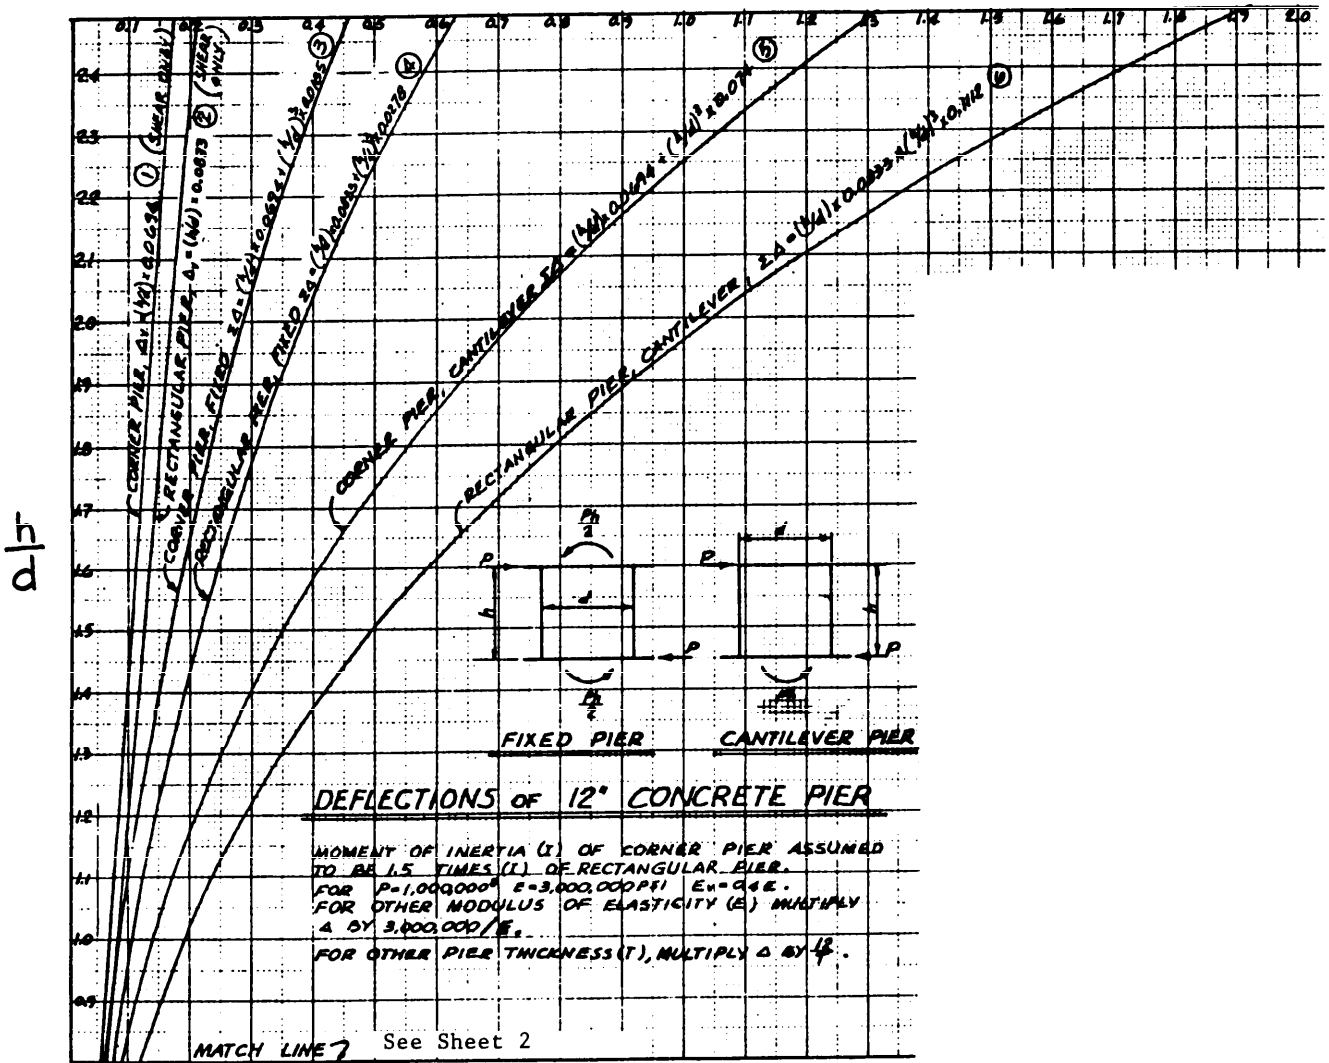 0.1 0.2 0.3 0.4 0.5 0.6 0.7 0.8 0.9 1.0 1.1 1.2 1.3 1.4 1.5 1.6 1.7 1.8 1.9 2.0
2.4
2.3
2.2
2.1
2.0
1.9
1.8
1.7
1.6
1.5
1.4
1.3
1.2
1.1
1.0
0.9
h/d
CORNER PIER, ΔV=(h/d)×0.0694 ① (SHEAR ONLY)
RECTANGULAR PIER, Δv=(h/d)×0.0833 ② (SHEAR ONLY.)
CORNER PIER, FIXED ΣΔ=(h/d)×0.0694+(h/d)³×0.0185 ③
RECTANGULAR PIER, FIXED ΣΔ=(h/d)×0.0833+(h/d)³×0.0278 ④
CORNER PIER, CANTILEVER ΣΔ=(h/d)×0.0694+(h/d)³×0.074 ⑤
RECTANGULAR PIER, CANTILEVER, ΣΔ=(h/d)×0.0833+(h/d)³×0.1112 ⑥
Ph/2
P
d
h
P
Ph/2
FIXED PIER
d
P
h
P
CANTILEVER PIER
DEFLECTIONS OF 12" CONCRETE PIER
MOMENT OF INERTIA (I) OF CORNER PIER ASSUMED
TO BE 1.5 TIMES (I) OF RECTANGULAR PIER.
FOR P=1,000,000# E=3,000,000 PSI Ev=0.4E.
FOR OTHER MODULUS OF ELASTICITY (E) MULTIPLY
Δ BY 3,000,000/E.
FOR OTHER PIER THICKNESS (T), MULTIPLY Δ BY 12/T.
MATCH LINE See Sheet 2